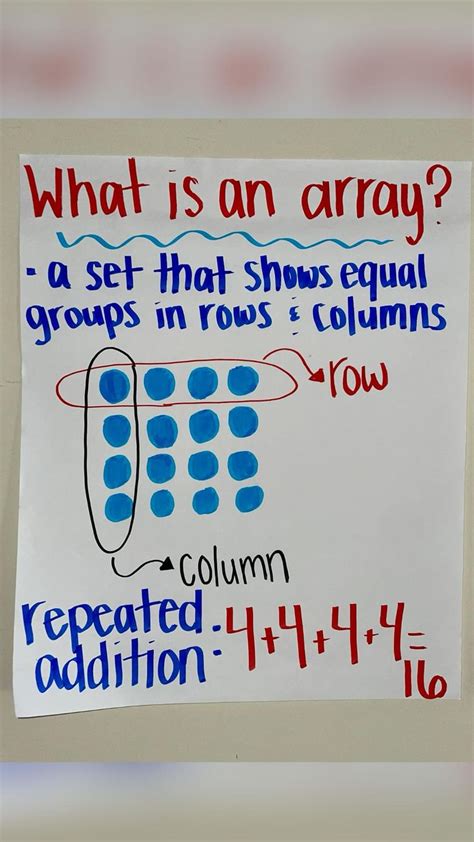 What is an array?
- a set that shows equal
groups in rows & columns
row
column
repeated
addition:
4+4+4+4=
16